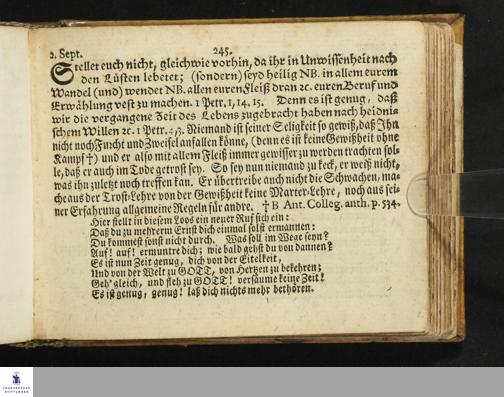 2. Sept. 245.
Stellet euch nicht, gleichwie vorhin, da ihr in Unwissenheit nach
den Lüsten lebetet; (sondern) seyd heilig NB. in allem eurem
Wandel (und) wendet NB. allen euren Fleiß dran ꝛc. euren Beruf und
Erwählung vest zu machen. 1 Petr. 1, 14. 15. Denn es ist genug, daß
wir die vergangene Zeit des Lebens zugebracht haben nach heidni-
schem Willen ꝛc. 1 Petr. 4,3. Niemand ist seiner Seligkeit so gewiß, daß Ihn
nicht noch Furcht und Zweifel anfallen könne, (denn es ist keine Gewißheit ohne
Kampf †) und er also mit allem Fleiß immer gewisser zu werden trachten sol-
le, daß er auch im Tode getrost sey. So sey nun niemand zu keck, er weiß nicht,
was ihn zuletzt noch treffen kan. Er übertreibe auch nicht die Schwachen, ma-
che aus der Trost-Lehre von der Gewißheit keine Marter-Lehre, noch aus sei-
ner Erfahrung allgemeine Regeln für andre. † B Ant. Colleg. anth. p. 534.
Hier stellt in diesem Loos ein neuer Ruf sich ein:
Daß du zu mehrerm Ernst dich einmal solst ermannen:
Du kommest sonst nicht durch. Was soll im Wege seyn?
Auf! auf! ermuntre dich; wie bald gehst du von dannen?
Es ist nun Zeit genug, dich von der Eitelkeit,
Und von der Welt zu GOTT, von Hertzen zu bekehren;
Geh' gleich, und fleh zu GOTT! versäume keine Zeit!
Es ist genug, genug! laß dich nichts mehr bethören.
FRANCKESCHE
STIFTUNGEN